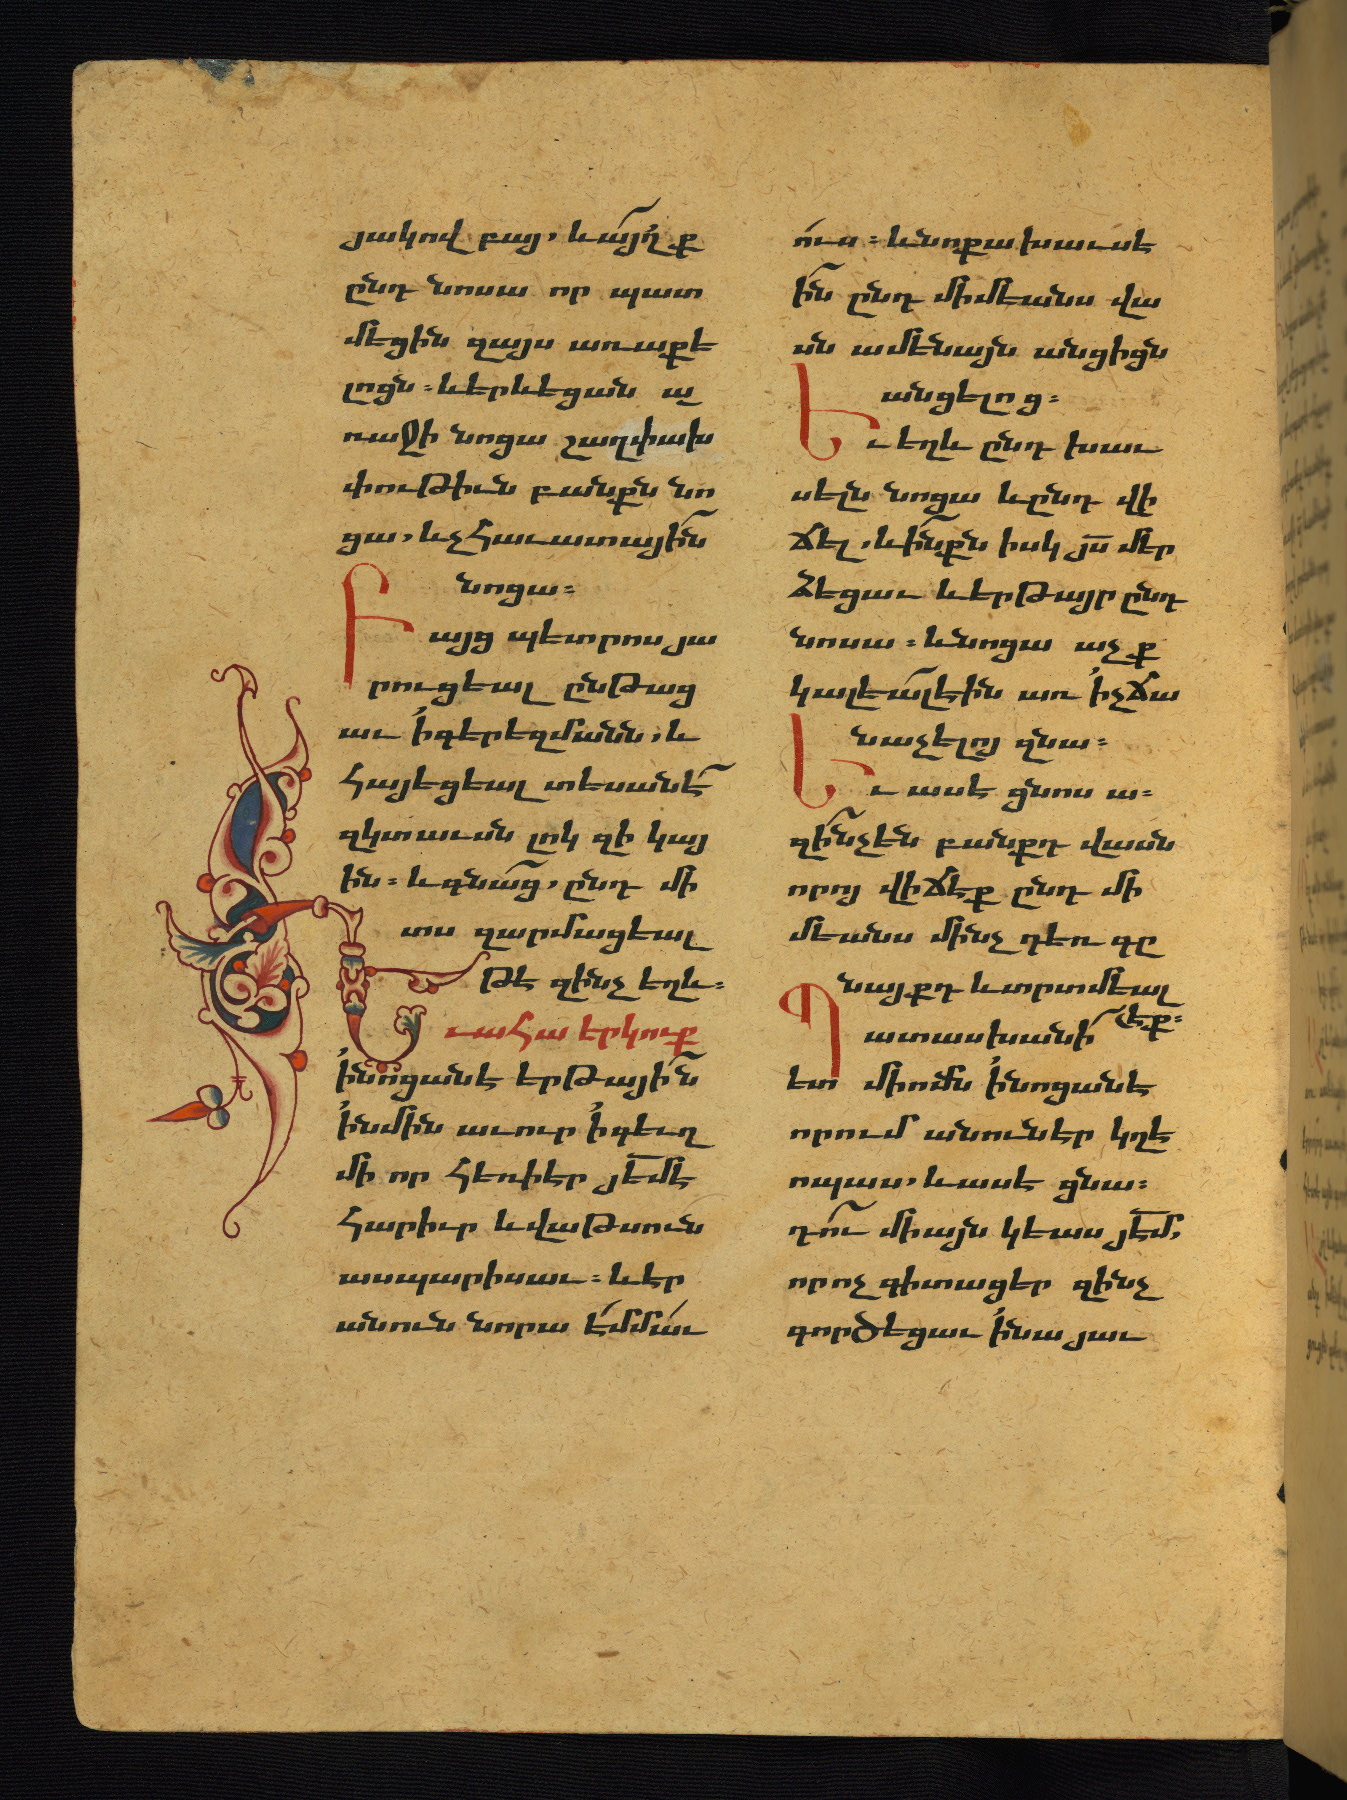 յակովբայ, և այղ ք
ընդ նոսա որ պատ
մեցին զայս առաքե
լոցն։ և երևեցան ա
ռաջի նոցա շաղփաղփ
փութիւն բանքն նո
ցա, և չհաւատային
նոցա։
Բայց պետրոս յա
րուցեալ ընթաց
աւ ի գերեզմանն, և
հայեցեալ տեսանէ
զկտաւսն լոկ զի կայ
ին։ և գնաց, ընդ մի
տս զարմացեալ
թե զինչ եղև։
Եւ ահա երկուք
ի նոցանե երթային
ի նմին աւուր ի գեւղ
մի որ հեռի էր յեմե
հարիւր և վաթսուն
ասպարիսաւ։ և եր
անուն նորա էմմաւ
ուս։ և նոքա խաւսե
ին ընդ միմեանս վա
սն ամենայն անցիցն
անցելոց։
Եւ եղև ընդ խաւ
սելն նոցա և ընդ վի
ճել, և ինքն իսկ յս մեր
ձեցաւ և երթայր ընդ
նոսա։ և նոցա աչք
կալեալ էին առ ի չճա
նաչելոյ զնա։
Եւ ասե ցնոս ա։
զինչ են բանքդ վասն
որոյ վիճեք ընդ մի
մեանս մինչ դեռ գը
նայքդ և տրտմեալ
էք։
Պատասխանի
ետ միումն ի նոցանե
որում անուն էր կղե
ոպաս, և ասե ցնա։
դու միայն կեաս յեմ,
որ ոչ գիտացեր զինչ
գործեցաւ ի նմա յաւ